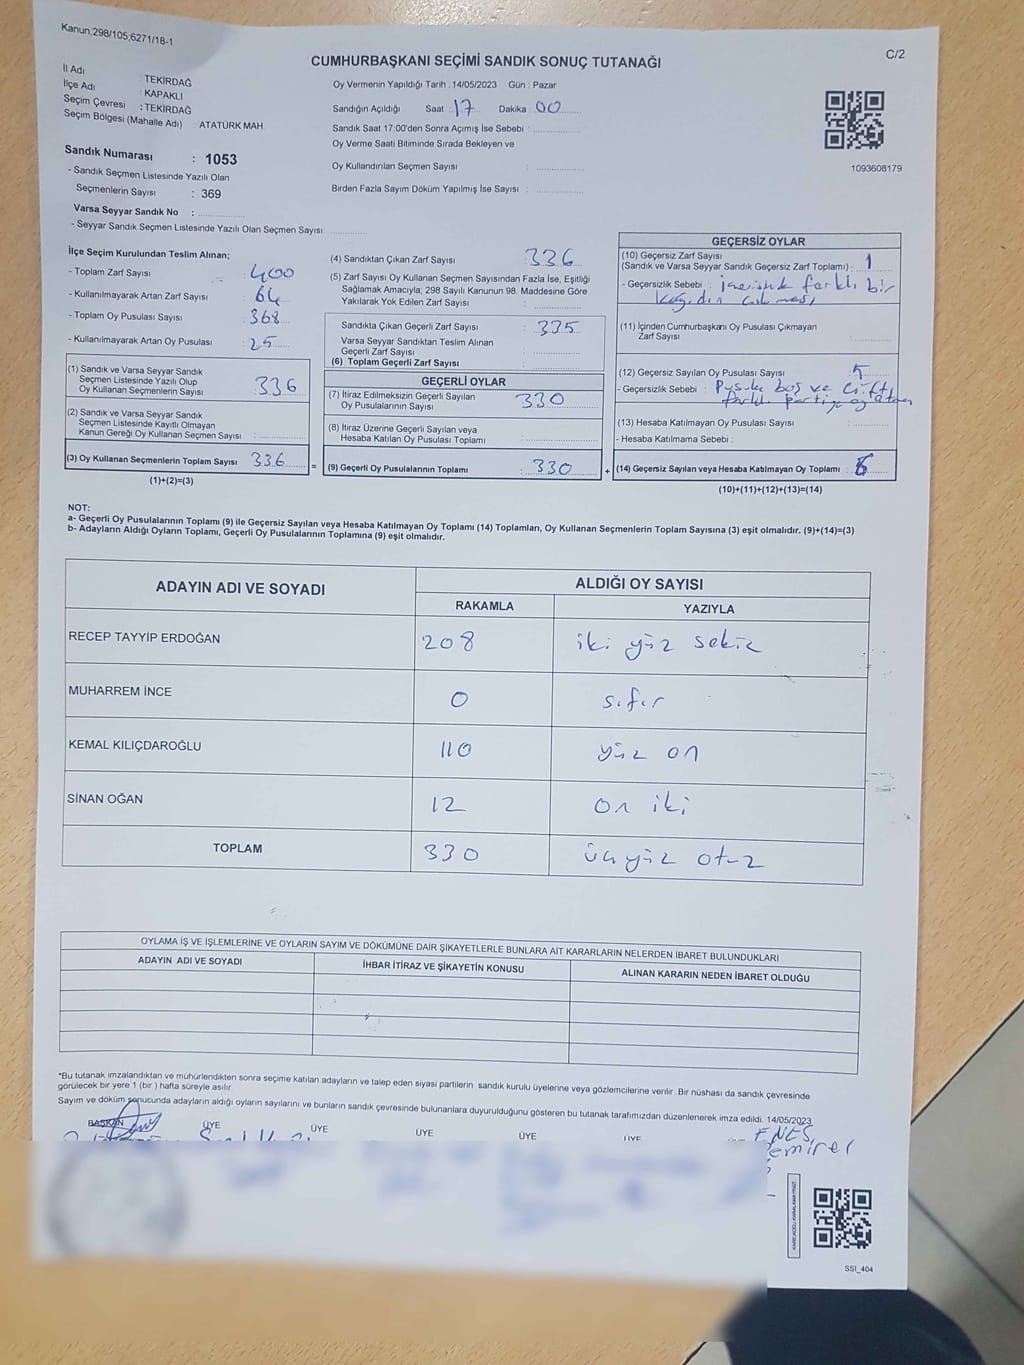 Kanun;298/105;6271/18-1
C/2
CUMHURBAŞKANI SEÇİMİ SANDIK SONUÇ TUTANAĞI
İl Adı TEKİRDAĞ
İlçe Adı : KAPAKLI
Seçim Çevresi : TEKİRDAĞ
Seçim Bölgesi (Mahalle Adı) : ATATÜRK MAH
Oy Vermenin Yapıldığı Tarih : 14/05/2023 Gün : Pazar
Sandığın Açıldığı Saat : 17 Dakika : 00
Sandık Saat 17:00'den Sonra Açılmış İse Sebebi :
Oy Verme Saati Bitiminde Sırada Bekleyen ve
Oy Kullandırılan Seçmen Sayısı :
Birden Fazla Sayım Döküm Yapılmış İse Sayısı :
1093608179
Sandık Numarası : 1053
- Sandık Seçmen Listesinde Yazılı Olan
Seçmenlerin Sayısı : 369
Varsa Seyyar Sandık No :
- Seyyar Sandık Seçmen Listesinde Yazılı Olan Seçmen Sayısı:
İlçe Seçim Kurulundan Teslim Alınan;
- Toplam Zarf Sayısı : 400
- Kullanılmayarak Artan Zarf Sayısı : 64
- Toplam Oy Pusulası Sayısı : 368
- Kullanılmayarak Artan Oy Pusulası : 25
(1) Sandık ve Varsa Seyyar Sandık
Seçmen Listesinde Yazılı Olup
Oy Kullanan Seçmenlerin Sayısı : 336
(2) Sandık ve Varsa Seyyar Sandık
Seçmen Listesinde Kayıtlı Olmayan
Kanun Gereği Oy Kullanan Seçmen Sayısı :
(3) Oy Kullanan Seçmenlerin Toplam Sayısı : 336
(1)+(2)=(3)
(4) Sandıktan Çıkan Zarf Sayısı : 336
(5) Zarf Sayısı Oy Kullanan Seçmen Sayısından Fazla İse, Eşitliği
Sağlamak Amacıyla; 298 Sayılı Kanunun 98. Maddesine Göre
Yakılarak Yok Edilen Zarf Sayısı :
Sandıkta Çıkan Geçerli Zarf Sayısı : 335
Varsa Seyyar Sandıktan Teslim Alınan
Geçerli Zarf Sayısı :
(6) Toplam Geçerli Zarf Sayısı
GEÇERLİ OYLAR
(7) İtiraz Edilmeksizin Geçerli Sayılan
Oy Pusulalarının Sayısı : 330
(8) İtiraz Üzerine Geçerli Sayılan veya
Hesaba Katılan Oy Pusulası Toplamı :
= (9) Geçerli Oy Pusulalarının Toplamı : 330 +
GEÇERSİZ OYLAR
(10) Geçersiz Zarf Sayısı
(Sandık ve Varsa Seyyar Sandık Geçersiz Zarf Toplamı) : 1
- Geçersizlik Sebebi : içerisinde farklı bir
kağıdın çıkması
(11) İçinden Cumhurbaşkanı Oy Pusulası Çıkmayan
Zarf Sayısı :
(12) Geçersiz Sayılan Oy Pusulası Sayısı : 5
- Geçersizlik Sebebi : Pusula boş ve çift
farklı partiye oy
(13) Hesaba Katılmayan Oy Pusulası Sayısı :
- Hesaba Katılmama Sebebi :
(14) Geçersiz Sayılan veya Hesaba Katılmayan Oy Toplamı : 6
(10)+(11)+(12)+(13)=(14)
NOT:
a- Geçerli Oy Pusulalarının Toplamı (9) ile Geçersiz Sayılan veya Hesaba Katılmayan Oy Toplamı (14) Toplamları, Oy Kullanan Seçmenlerin Toplam Sayısına (3) eşit olmalıdır. (9)+(14)=(3)
b- Adayların Aldığı Oyların Toplamı, Geçerli Oy Pusulalarının Toplamına (9) eşit olmalıdır.
ADAYIN ADI VE SOYADI ALDIĞI OY SAYISI
RAKAMLA YAZIYLA
RECEP TAYYİP ERDOĞAN 208 iki yüz sekiz
MUHARREM İNCE 0 sıfır
KEMAL KILIÇDAROĞLU 110 yüz on
SİNAN OĞAN 12 on iki
TOPLAM 330 üçyüz otuz
OYLAMA İŞ VE İŞLEMLERİNE VE OYLARIN SAYIM VE DÖKÜMÜNE DAİR ŞİKAYETLERLE BUNLARA AİT KARARLARIN NELERDEN İBARET BULUNDUKLARI
ADAYIN ADI VE SOYADI İHBAR İTİRAZ VE ŞİKAYETİN KONUSU ALINAN KARARIN NEDEN İBARET OLDUĞU
*Bu tutanak imzalandıktan ve mühürlendikten sonra seçime katılan adayların ve talep eden siyasi partilerin sandık kurulu üyelerine veya gözlemcilerine verilir. Bir nüshası da sandık çevresinde
görülecek bir yere 1 (bir ) hafta süreyle asılır.
Sayım ve döküm sonucunda adayların aldığı oyların sayılarını ve bunların sandık çevresinde bulunanlara duyurulduğunu gösteren bu tutanak tarafımızdan düzenlenerek imza edildi. 14/05/2023
BAŞKAN ÜYE ÜYE ÜYE ÜYE ÜYE
ENES
emirel
SSI_404